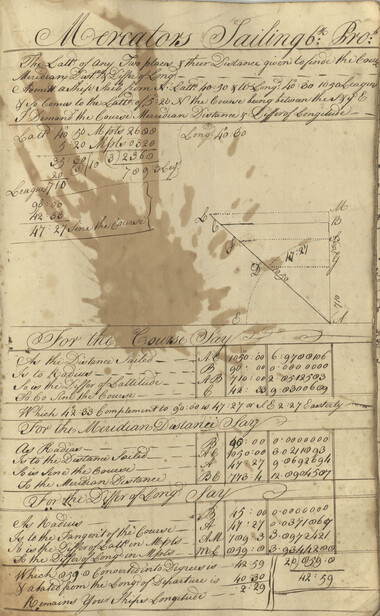 Mercators Sailing 6th Pro
The Latt of any Two places & their Distance given to finde the Cou
Meridian Dist & Differ of Long
Admitt a Ship Sails from N Latt 40:50 & W Long 40:30 1050 Leagu
& so Comes to the Latt of 5:20 N the Course being between the S & E
I Demand the Course Meridian Distance & Differ of Longitude
Latt 40 50 Mpts 2680 Long 40 30
5 20 Mpts 0320
35 30 3/2360
20
Leagues 710
90:00
42 33
47:27 Sine the Course
L M
B
47:27
D
E A
For the Course Say
As the Distance Sailed A C 1050:00
Is to Radius B 90:00 0:0000000
So is the Differ of Lattitude A B 710:00 2:8512583
To Co Sine the Course C 42:33 9:8300689
Which 42:33 Complement to 90:00 is 47:27 or S E 2:27 Easterly
For the Meridian Distance Say
As Radius B 90:00 0:0000000
Is to the Distance Sailed A C 1050:00 3:0211893
So is Sine the Course A 47:27
To the Meridian Distance B C 773:4
For the Differ of Long Say
As Radius B 45:00 0:0000000
Is to the Tangent of the Course A 47:27 0:0371069
So is the Differ of Latt in Mpts A M
To the Differ of Long in Mpts M L
Which 859 Converted into Degrees is 42:59
Substrated from the Long of Departure is 40:30 42:59
Remains Your Ships Longitude 2:29